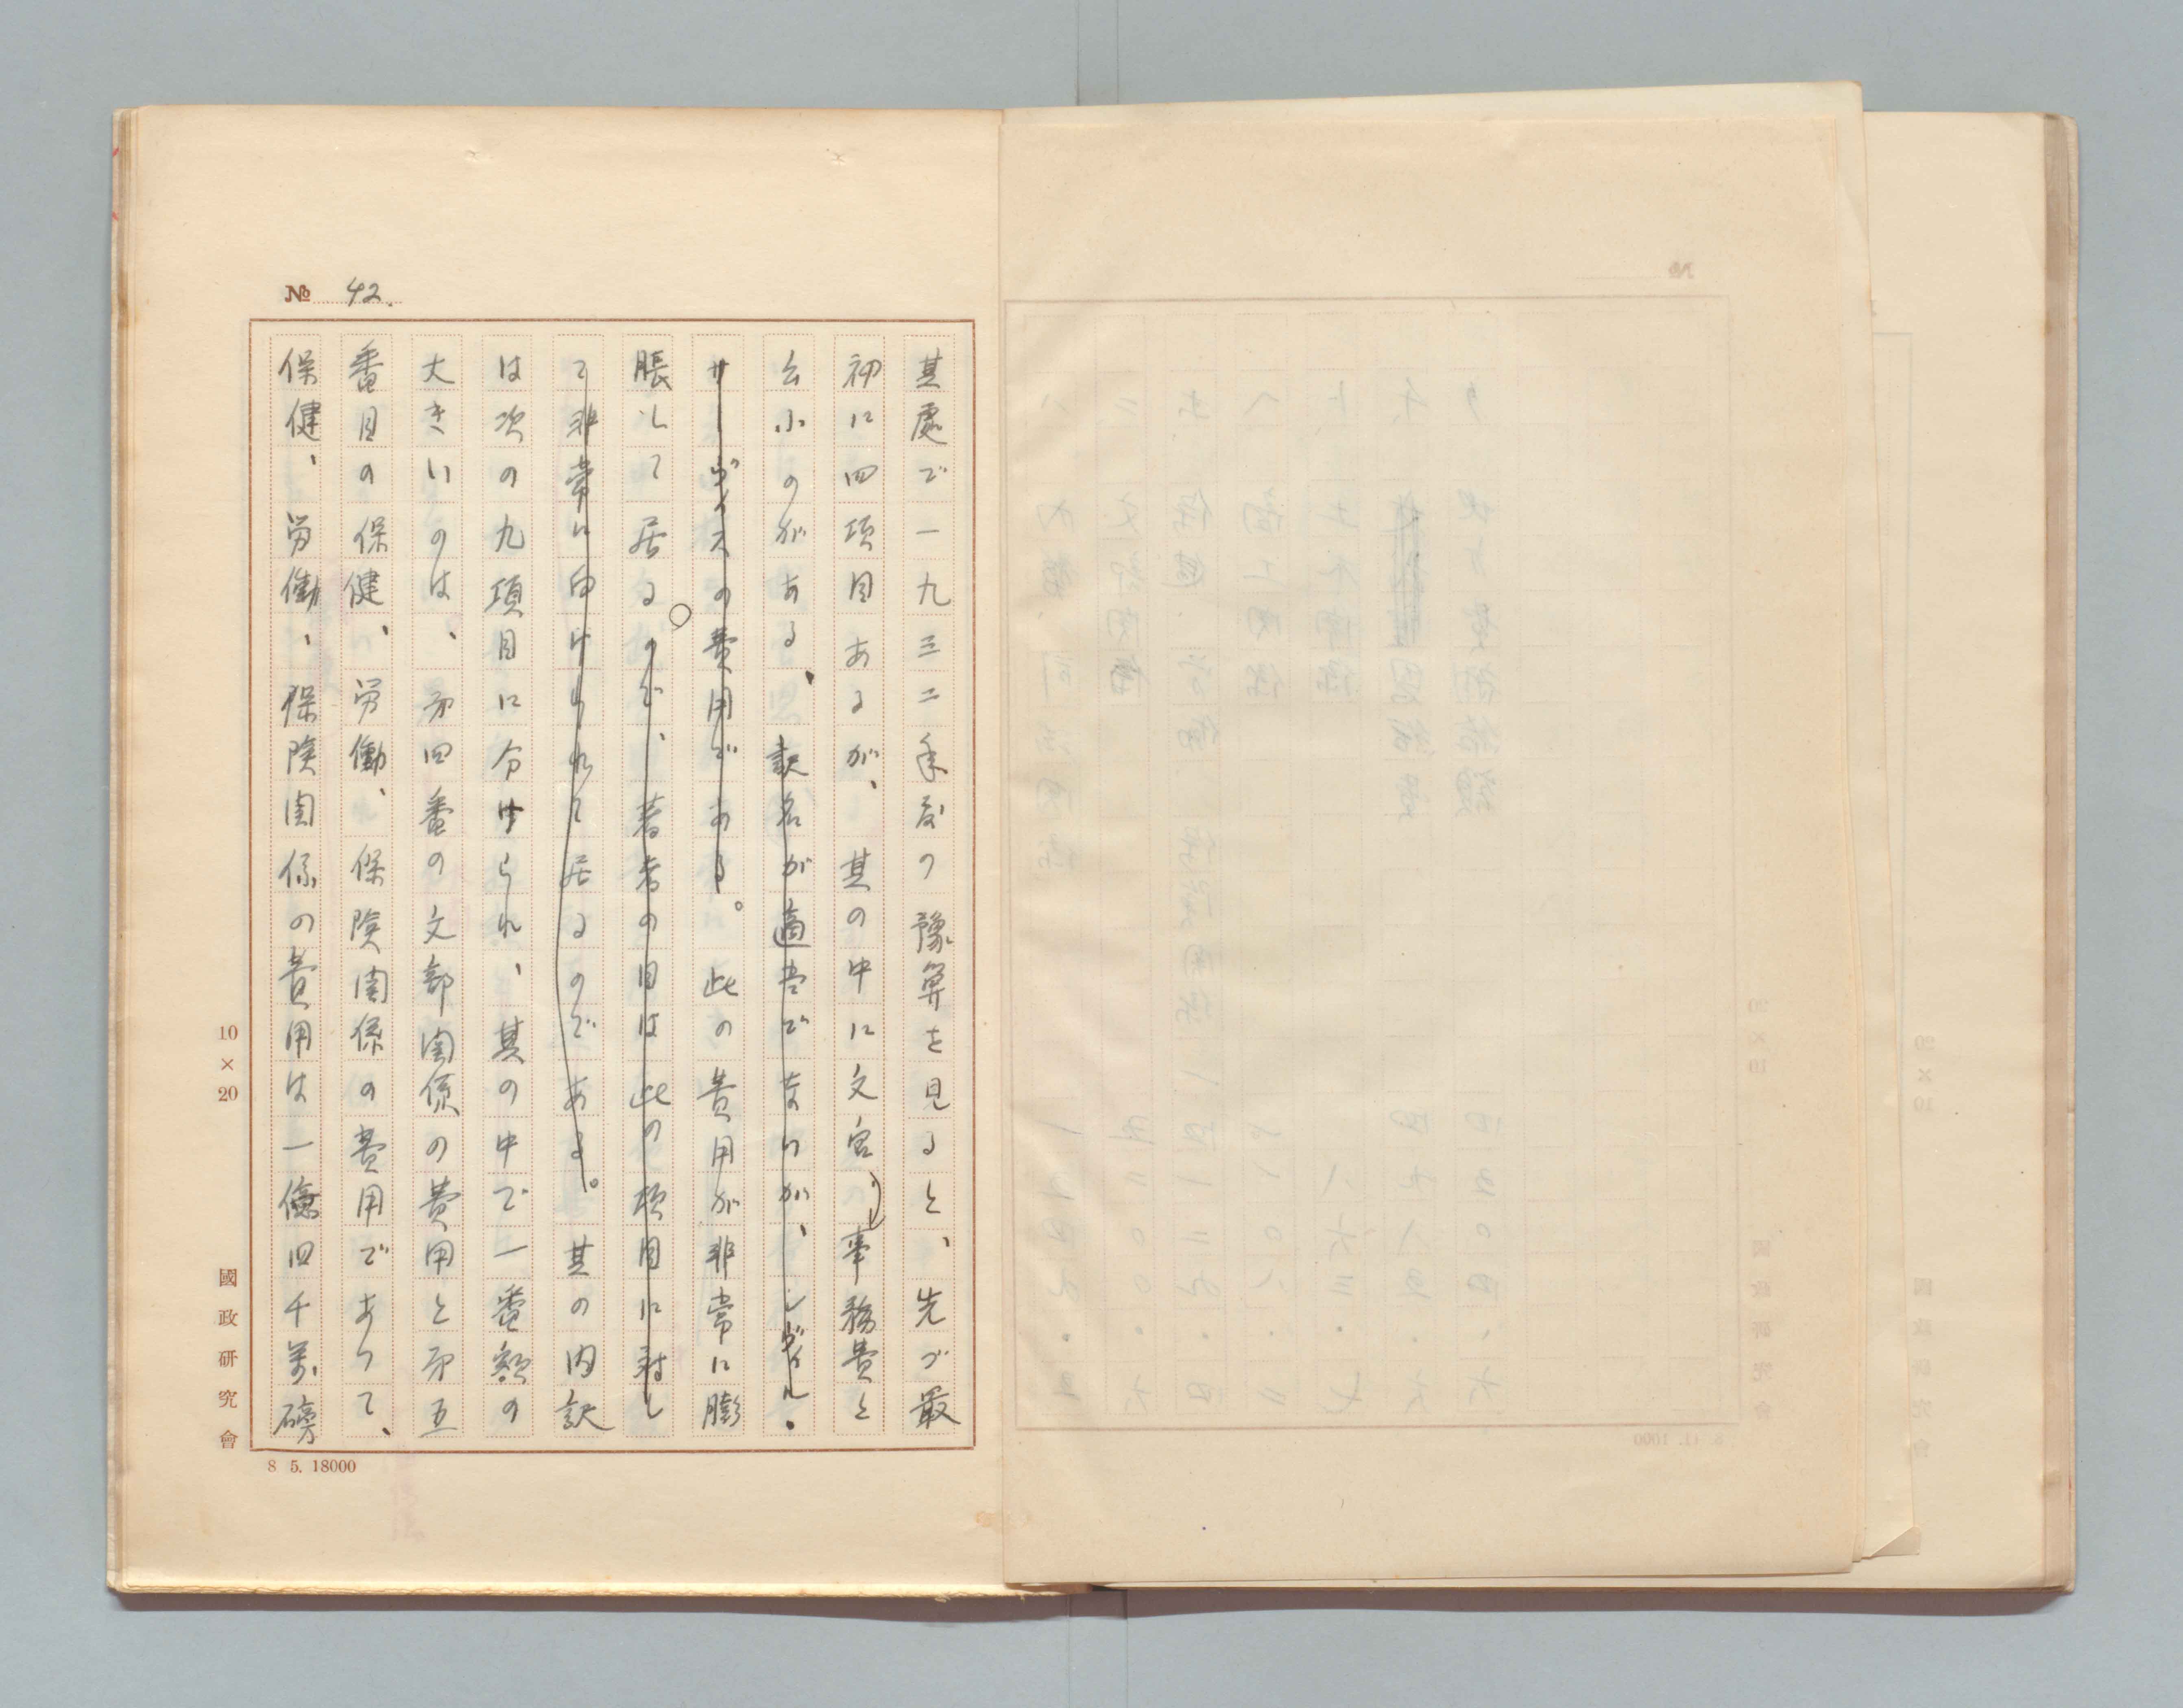 № 42.
其處で一九三二年度の豫算を見ると、先づ最
初に四項目あるが、其の中に文官事務費と
云ふのがある、訳名が適当でないが、シヴィル・
サーヴィスの費用である。此の費用が非常に膨
脹して居る。ので、著者の目は此の項目に対し
て非常に向けられて居るのである。其の内訳
は次の九項目に分けられ、其の中で一番額の
大きいのは、第四番の文部関係の費用と第五
番目の保健、労働、保険関係の費用であつて、
保健、労働、保険関係の費用は一億四千萬磅
10×20
國政研究會
8 5. 18000